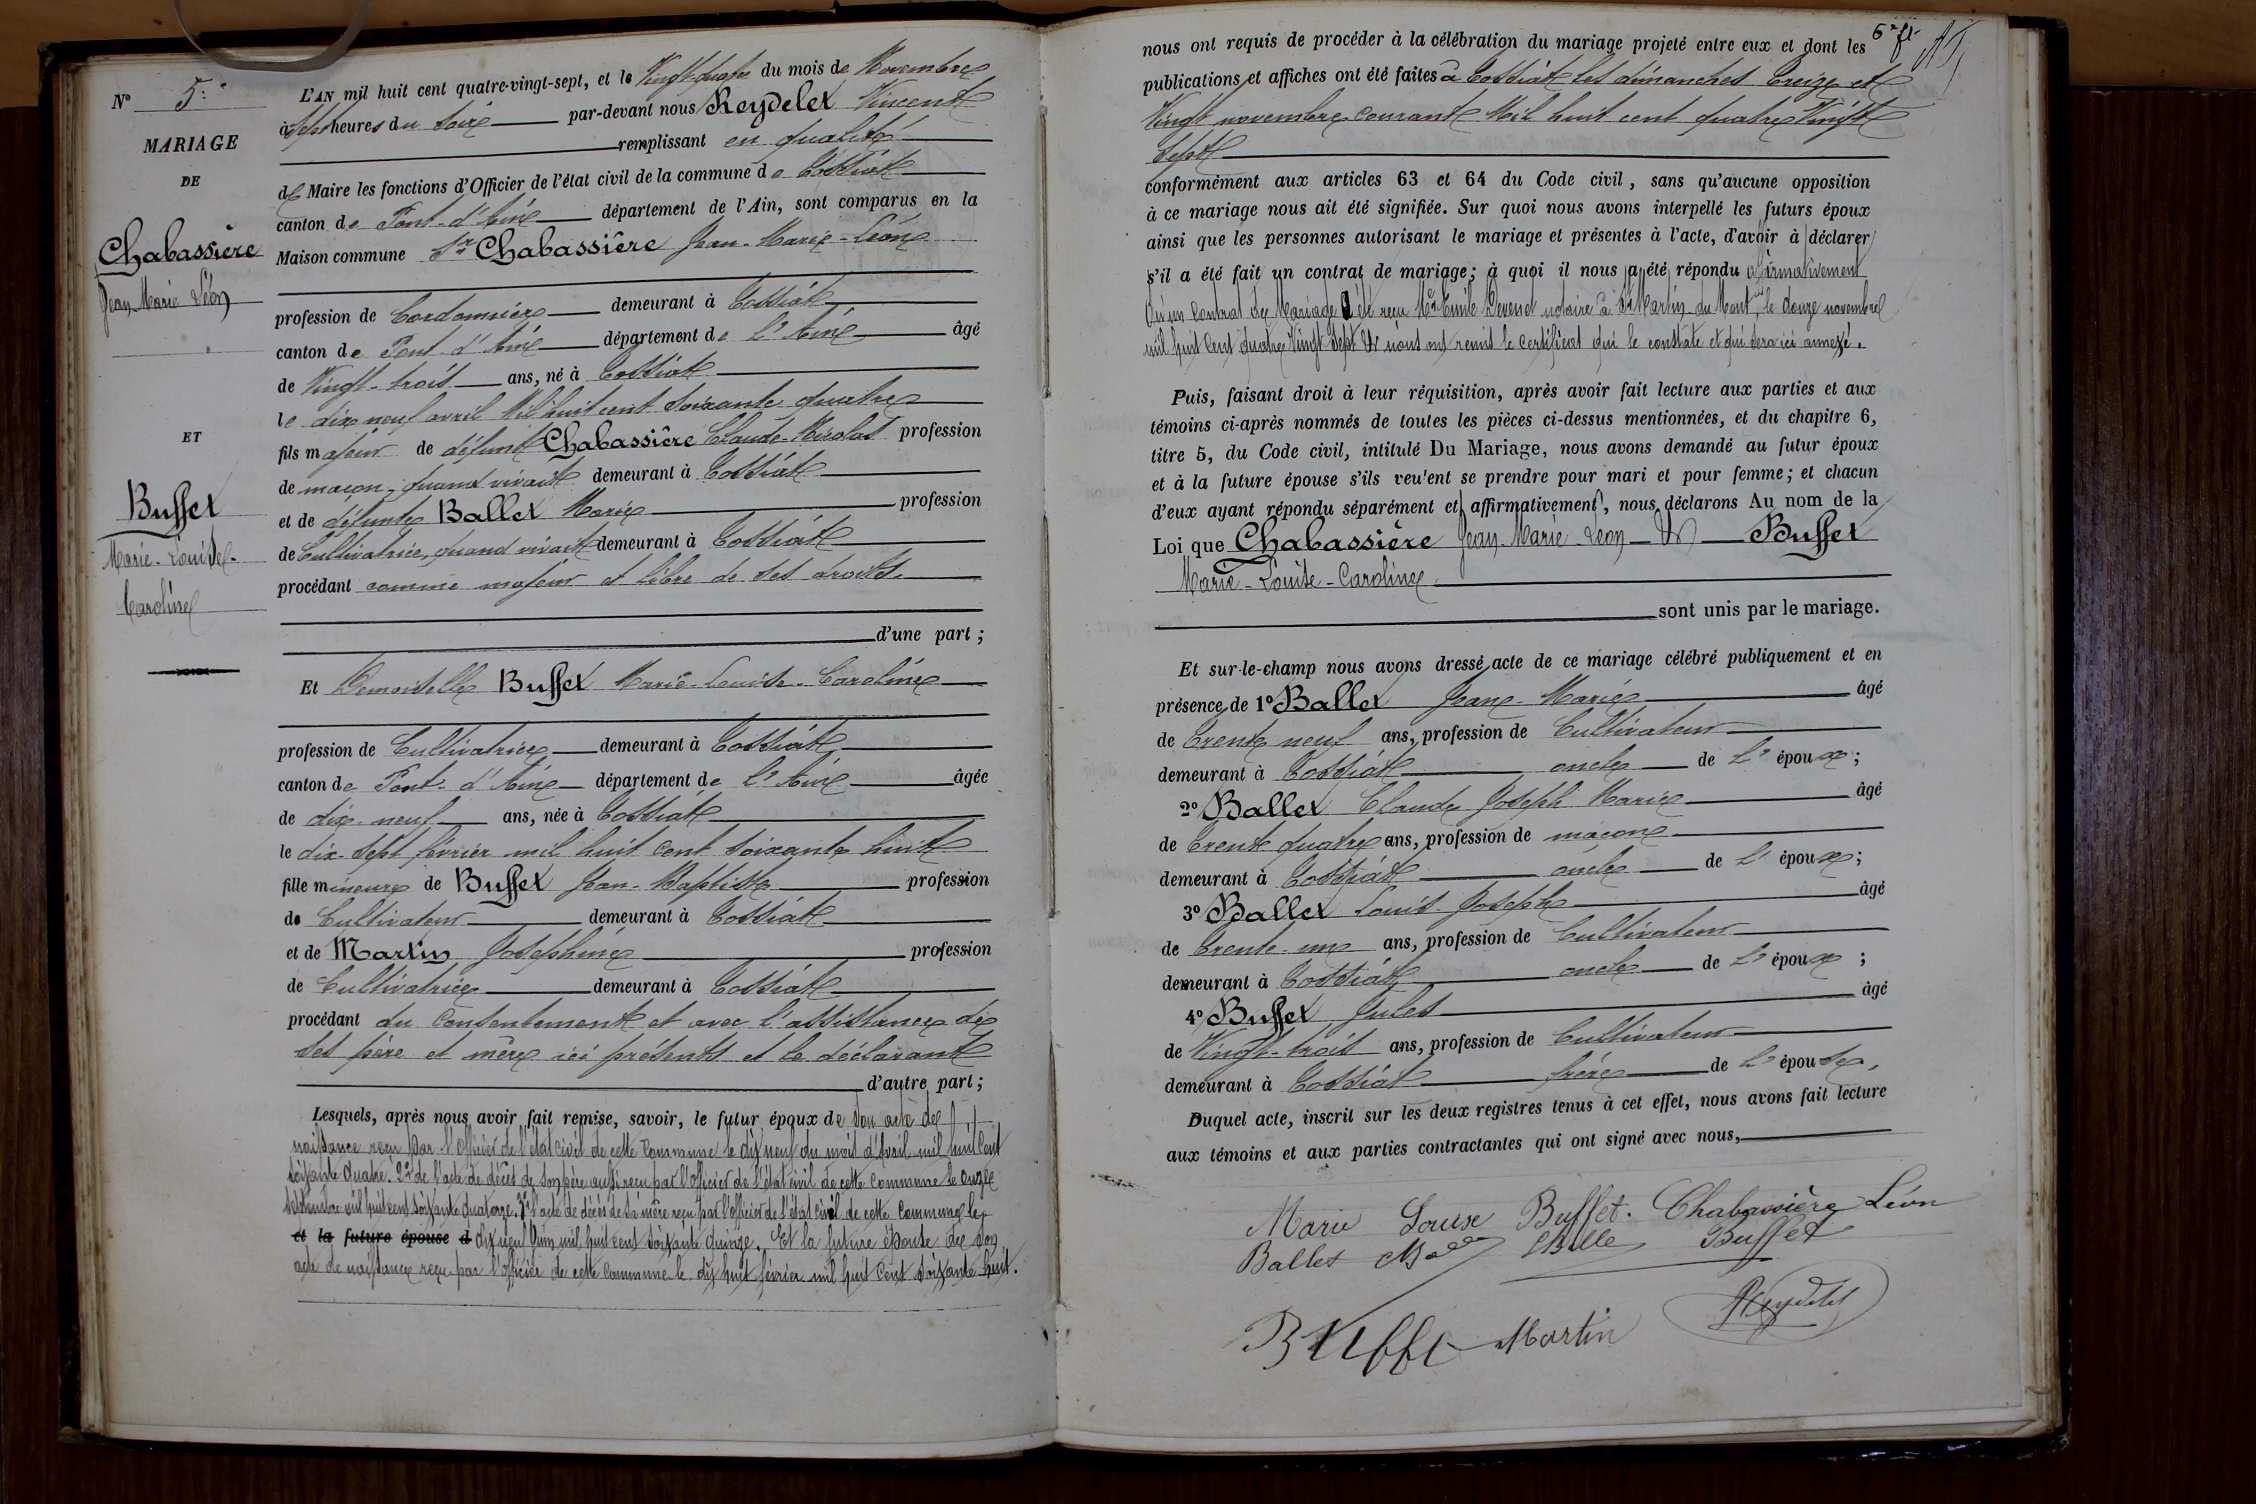 N° 5.e
MARIAGE
DE
Chabassière
Jean-Marie Léon
ET
Buffet
Marie-Louise-
Caroline
L'AN mil huit cent quatre-vingt-sept, et le Vingt-quatre du mois de Novembre
à sept heures du soir par-devant nous Reydelet Vincent
remplissant en qualité
de Maire les fonctions d'Officier de l'état civil de la commune de Tossiat
canton de Pont-d'Ain département de l'Ain, sont comparus en la
Maison commune Sr Chabassière Jean-Marie-Léon
profession de Cordonnier demeurant à Tossiat
canton de Pont-d'Ain département de l'Ain âgé
de Vingt-trois ans, né à Tossiat
le dix neuf avril Mil huit cent soixante quatre
fils majeur de défunt Chabassière Claude-Nicolas profession
de maçon, quand vivait demeurant à Tossiat
et de défunte Ballet Marie profession
de Cultivatrice, quand vivait demeurant à Tossiat
procédant comme majeur et libre de ses droits.
d'une part;
Et Demoiselle Buffet Marie-Louise-Caroline
profession de Cultivatrice demeurant à Tossiat
canton de Pont-d'Ain département de l'Ain âgée
de dix-neuf ans, née à Tossiat
le dix-sept février mil huit cent soixante huit
fille mineure de Buffet Jean-Baptiste profession
de Cultivateur demeurant à Tossiat
et de Martin Joséphine profession
de Cultivatrice demeurant à Tossiat
procédant du consentement et avec l'assistance de
ses père et mère ici présents et le déclarant
d'autre part;
Lesquels, après nous avoir fait remise, savoir, le futur époux de son acte de
naissance reçu par l'officier de l'état civil de cette commune le dix neuf du mois d'avril mil huit cent
soixante quatre. 2° de l'acte de décès de son père aussi reçu par l'officier de l'état civil de cette commune le onze
septembre mil huit cent soixante quatorze. 3° l'acte de décès de sa mère reçu par l'officier de l'état civil de cette commune le
et la future épouse d dix neuf Juin mil huit cent soixante quinze. Et la future épouse de son
acte de naissance reçu par l'officier de cette commune le dix huit février mil huit cent soixante huit.
6e ft
nous ont requis de procéder à la célébration du mariage projeté entre eux et dont les
publications et affiches ont été faites à Tossiat les dimanches treize et
Vingt novembre courant Mil huit cent quatre Vingt
Sept
conformément aux articles 63 et 64 du Code civil, sans qu'aucune opposition
à ce mariage nous ait été signifiée. Sur quoi nous avons interpellé les futurs époux
ainsi que les personnes autorisant le mariage et présentes à l'acte, d'avoir à déclarer
s'il a été fait un contrat de mariage; à quoi il nous a été répondu affirmativement
Qu'un contrat de Mariage a été reçu Me Emile notaire à St Martin-du-Mont, le douze novembre
mil huit cent quatre Vingt Sept & nous ont remis le certificat qui le constate et qui sera ici annexé.
Puis, faisant droit à leur réquisition, après avoir fait lecture aux parties et aux
témoins ci-après nommés de toutes les pièces ci-dessus mentionnées, et du chapitre 6,
titre 5, du Code civil, intitulé Du Mariage, nous avons demandé au futur époux
et à la future épouse s'ils veulent se prendre pour mari et pour femme; et chacun
d'eux ayant répondu séparément et affirmativement, nous déclarons Au nom de la
Loi que Chabassière Jean-Marie-Léon & Buffet
Marie-Louise-Caroline
sont unis par le mariage.
Et sur-le-champ nous avons dressé acte de ce mariage célébré publiquement et en
présence de 1° Ballet Jean-Marie âgé
de Trente neuf ans, profession de Cultivateur
demeurant à Tossiat oncle de l'époux;
2° Ballet Claude Joseph Marie âgé
de Trente quatre ans, profession de maçon
demeurant à Tossiat oncle de l'époux;
3° Ballet Louis-Joseph âgé
de Trente-un ans, profession de Cultivateur
demeurant à Tossiat oncle de l'époux;
4° Buffet Jules âgé
de Vingt-trois ans, profession de Cultivateur
demeurant à Tossiat frère de l'épouse,
Duquel acte, inscrit sur les deux registres tenus à cet effet, nous avons fait lecture
aux témoins et aux parties contractantes qui ont signé avec nous,
Marie Louise Buffet. Chabassière Léon
Ballet Buffet
Buffet Martin Reydelet